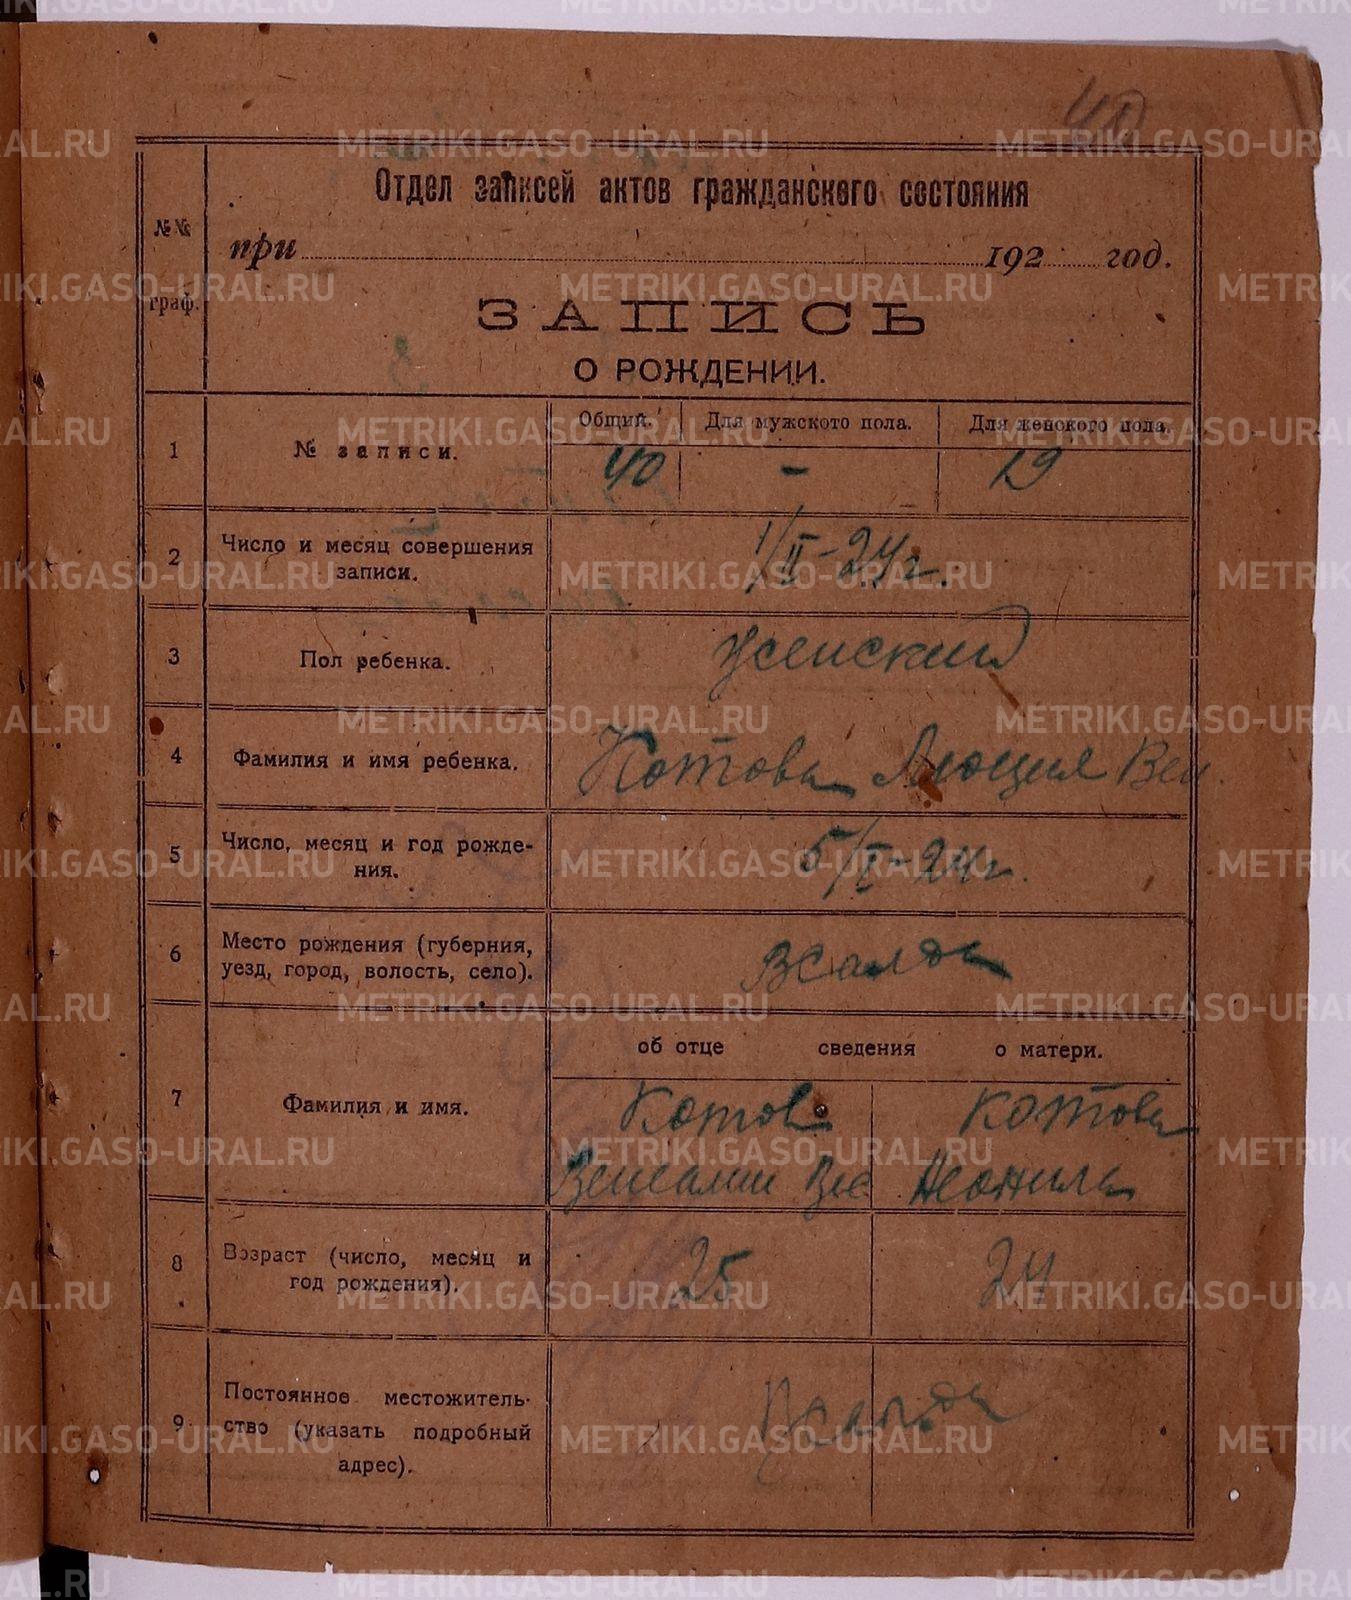 40
Отдел записей актов гражданского состояния
№№
граф.
при 192 год.
ЗАПИСЬ
О РОЖДЕНИИ.
1 № записи. Общий. Для мужского пола. Для женского пола.
40 - 19
2 Число и месяц совершения
записи.
1/II-24г.
3 Пол ребенка. Женский
4 Фамилия и имя ребенка. Котова Люция Вен.
5 Число, месяц и год рожде-
ния.
5/I-24г.
6 Место рождения (губерния,
уезд, город, волость, село).
ВСалда
об отце сведения о матери.
7 Фамилия и имя.
Котов Котова
Вениамин Вас Неонила
8 Возраст (число, месяц и
год рождения).
25 24
9 Постоянное местожитель-
ство (указать подробный
адрес).
ВСалда
METRIKI.GASO-URAL.RU